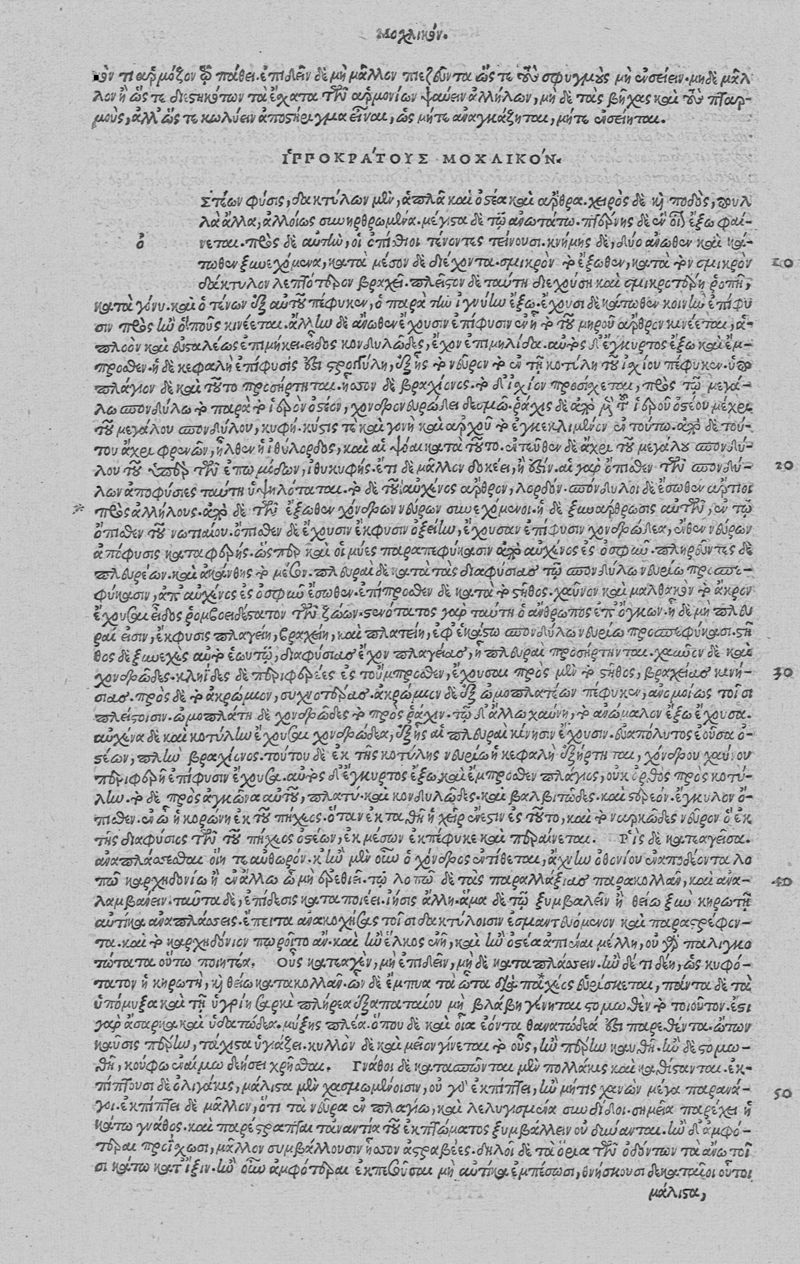 Μοχλικόν.
όν τι ἁρμόζον τῷ πάθει. ἐπιδεῖν δὲ μὴ μᾶλλον πιεζεῦντα ὥς τε τοὺς σφυγμοὺς μὴ ἐνσείειν. μηδὲ μᾶλ
λον ἢ ὥς τε διεστηκότων τὰ ἔσχατα τῶν ἁρμονίων ψαύειν ἀλλήλων, μὴ δὲ τὰς βῆχας καὶ τοὺς πταρ-
μοὺς, ἀλλ' ὥς τε κωλύειν ἀποστήριγμα εἶναι, ὡς μήτε ἀναγκάζηται, μήτε ἐνσείηται.
ἹΠΠΟΚΡΑΤΟΥΣ ΜΟΧΛΙΚΟΝ.
Στέων φύσις, δακτύλων μὲν, ἁπλᾶ καὶ ὀστέα καὶ ἄρθρα. χειρὸς δὲ καὶ ποδὸς, πουλ
λὰ ἄλλα, ἀλλοίως συνηρθρωμένα. μέγιστα δὲ τῷ ἀνωτάτω. πτέρνης δὲ ἓν οἷον ἔξω φαί
ὁ
νεται. πρὸς δὲ αὐτὴν, οἱ ὀπίσθιοι τένοντες τείνουσι. κνήμης δὲ, δύο ἄνωθεν καὶ κά-
τωθεν ξυνεχόμενα, κατὰ μέσον δὲ διέχοντα. σμικρὸν τὸ ἔξωθεν, κατὰ τὸν σμικρὸν
20
δάκτυλον λεπτότερον βραχεῖ. πλεῖστον δὲ ταύτῃ διεχούσῃ καὶ σμικροτέρῃ ῥοπῇ,
κατὰ γόνυ. καὶ ὁ τένων ἐξ αὐτοῦ πέφυκεν, ὁ παρὰ τὴν ἰγνύην ἔξω. ἔχουσι δὲ κάτωθεν κοινὴν ἐπίφυ
σιν πρὸς ἣν ὁ ποὺς κινέεται. ἄλλην δὲ ἄνωθεν ἔχουσιν ἐπίφυσιν ἐν ᾗ τὸ τοῦ μηροῦ ἄρθρον κινέεται, ἁ-
πλόον καὶ εὐσταλέως ἐπιμήκει. εἶδος κονδυλῶδες, ἔχον ἐπιμηλίδα. αὐτὸς δ' ἔγκυρτος ἔξω καὶ ἔμ-
προσθεν. ἡ δὲ κεφαλὴ ἐπίφυσίς ἐστι στρογγύλη, ἐξ ἧς τὸ νεῦρον τὸ ἐν τῇ κοτύλῃ τοῦ ἰσχίου πέφυκεν. ὑπο
πλάγιον δὲ καὶ τοῦτο προσήρτηται. ἧσσον δὲ βραχίονος. τὸ δ' ἰσχίον προσίσχεται, πρὸς τῷ μεγά-
λῳ σπονδύλῳ τῷ παρὰ τὸ ἱερὸν ὀστέον, χονδρονευρώδει δεσμῷ. ῥάχις δὲ ἀπὸ μὲν τοῦ ἱεροῦ ὀστέου μέχρι
τοῦ μεγάλου σπονδύλου, κυφή. κύστις τε καὶ γονὴ καὶ ἀρχοῦ τὸ ἐγκεκλιμένον ἐν τούτῳ. ἀπὸ δὲ τού-
του ἄχρι φρενῶν, ἦλθεν ἡ ἰθύλορδος, καὶ αἱ ψόαι κατὰ τοῦτο. ἐντεῦθεν δὲ ἄχρι τοῦ μεγάλου σπονδύ-
λου τοῦ ὑπὲρ τῶν ἐπωμίδων, ἰθυκυφής. ἔτι δὲ μᾶλλον δοκέει, ἢ ἐστιν. αἱ γὰρ ὄπισθεν τῶν σπονδύ-
20
λων ἀποφύσιες ταύτῃ ὑψηλόταται. τὸ δὲ τοῦ αὐχένος ἄρθρον, λορδόν. σπόνδυλοι δὲ ἔσωθεν ἄρτιοι
πρὸς ἀλλήλους. ἀπὸ δὲ τῶν ἔξωθεν χονδρων νεύρων συνεχόμενοι. ἡ δὲ ξυνάρθρωσις αὐτῶν, ἐν τῷ
ὄπισθεν τοῦ νωτιαίου. ὄπισθεν δὲ ἔχουσιν ἔκφυσιν ὀξεῖην, ἔχουσαν ἐπίφυσιν χονδρώδεα, ἔνθεν νεύρων
ἀπόφυσις καταφερής. ὥσπερ καὶ οἱ μύες παραπεφύκασιν ἀπὸ αὐχένος ἐς ὀσφῦν. πληρεῦντες δὲ
πλευρέων. καὶ ἀκάνθης τὸ μέσον. πλευραὶ δὲ κατὰ τὰς διαφύσιας τῷ σπονδύλων νευρίῳ προσπε-
φύκασιν, ἀπ' αὐχένος ἐς ὀσφῦν ἔσωθεν. ἐπίπροσθεν δὲ κατὰ τὸ στῆθος. χαῦνον καὶ μαλθακὸν τὸ ἄκρον
ἔχουσαι εἶδος ῥομβοειδέστατον τῶν ζώων. στενότατος γὰρ ταύτῃ ὁ ἄνθρωπος ἐπ' ὄγκων. ᾗ δὲ μὴ πλευ
ραί εἰσιν, ἔκφυσις πλαγίη, βραχείη, καὶ πλατείη, ἐφ' ἑκάστῳ σπονδύλων νευρίῳ προσπεφύκασι. στῆ
θος δὲ ξυνεχὲς αὐτὸ ἑωυτῷ, διαφύσιας ἔχον πλαγείας, ᾗ πλευραὶ προσήρτηνται. χαῦνον δὲ καὶ
χονδρῶδες. κληῖδες δὲ περιφερέες ἐς τοὔμπροσθεν, ἔχουσαι πρὸς μὲν τὸ στῆθος, βραχείας κινή-
30
σιας. πρὸς δὲ τὸ ἀκρώμιον, συχνοτέρας. ἀκρώμιον δὲ ἐξ ὠμοπλατέων πέφυκεν, ἀνομοίως τοῖσι
πλείστοισιν. ὠμοπλάτη δὲ χονδρώδης τὸ πρὸς ῥάχιν. τῷ δ' ἄλλῳ χαύνη, τὸ ἀνώμαλον ἔξω ἔχουσα.
αὐχένα δὲ καὶ κοτύλην ἔχουσα χονδρώδεα, ἐξ ἧς αἱ πλευραὶ κίνησιν ἔχουσιν. εὐαπόλυτος ἐοῦσα ὀ-
στέων, πλὴν βραχίονος. τούτου δὲ ἐκ τῆς κοτύλης νευρίῳ ἡ κεφαλὴ ἐξήρτηται, χόνδρου χαύνου
περιφερῆ ἐπίφυσιν ἔχουσα. αὐτὸς δ' ἔγκυρτος ἔξω, καὶ ἔμπροσθεν πλάγιος, οὐκ ὀρθὸς πρὸς κοτύ-
λην. τὸ δὲ πρὸς ἀγκῶνα αὐτοῦ, πλατύ. καὶ κονδυλῶδες. καὶ βαλβιτῶδες. καὶ στερεόν. ἔγκυλον ὄ-
πισθεν. ἐν ᾧ ἡ κορώνη ἐκ τοῦ πήχεος. ὅταν ἐκταθῇ ἡ χεὶρ ἔνεστιν ἐς τοῦτο, καὶ τὸ ναρκῶδες νεῦρον ὃ ἐκ
τῆς διαφύσιος τῶν τοῦ πήχεος ὀστέων, ἐκ μέσων ἐκπέφυκε καὶ περαίνεται. Ῥὶς δὲ κατεαγεῖσα.
ἀναπλάσσεσθαι οἵη τε αὐθωρόν. κἢν μὲν οὖν ὁ χόνδρος ἐντίθεται, ἄχνην ὀθονίου ἐναποδέοντα λο
πῷ καρχηδονίῳ ἢ ἐν ἄλλῳ ὃ μὴ ἐρεθιεῖ. τῷ λοπῷ δὲ τὰς παραλλάξιας παρακολλᾶν, καὶ ἀνα-
40
λαμβάνειν. ταῦτα δὲ, ἐπίδεσις κατα ποιέει. ἴησις ἄλλη. ἅμα δὲ τῷ ξυμβαλεῖν ἢ θείῳ ξὺν κηρωτῇ
αὐτίκα ἀναπλάσεις. ἔπειτα ἀνακοχήσεις τοῖσι δακτύλοισιν ἐσματευόμενον καὶ παραστρέφον-
τα. καὶ τὸ καρχηδόνιον πωροῖτο ἄν. καὶ ἢν ἕλκος ἐνῇ, καὶ ἢν ὀστέα ἀπιέναι μέλλῃ, οὐ γὰρ παλιγκο
τώτατα οὕτω ποιητέα. Οὖς καταγὲν, μὴ ἐπιδεῖν, μὴ δὲ καταπλάσσειν. ἢν δέ τι δέῃ, ὡς κυφό-
τατον ἡ κηρωτὴ, καὶ θείῳ κατακολλᾶν. ὧν δὲ ἔμπυα τὰ ὦτα διὰ πάχος εὑρίσκεται, πάντα δὲ τὰ
ὑπόμυξα καὶ τῇ ὑγρῇ σαρκὶ πλήρεα ἐξαπαταίου μὴ βλάβη γίνηται στομωθὲν τὸ τοιοῦτον. ἔστι
γὰρ ἄσαρκα καὶ ὑδατώδεα. μύξης πλέα. ὅπου δὲ καὶ οἷα ἐόντα θανατώδεά ἐστι παρεθέντα. ὤτων
καῦσις πέρην, τάχιστα ὑγιάζει. κυλλὸν δὲ καὶ μεῖον γίνεται τὸ οὖς, ἢν πέρην καυθῇ. ἢν δὲ στομω-
θῇ, κούφῳ ἐναίμῳ δεήσει χρῆσθαι. Γνάθοι δὲ κατασπῶνται μὲν πολλάκις καὶ καθίστανται. ἐκ-
πίπτουσι δὲ ὀλιγάκις, μάλιστα μὲν χασμωμένοισιν, οὐ γὰρ ἐκπίπτει, ἢν μή τις χανὼν μέγα παρανά-
50
γοι. ἐκπίπτει δὲ μᾶλλον, ὅτι τὰ νεῦρα ἐν πλαγίῳ, καὶ λελυγισμένα συνδίδοι. σημεῖα παρέχει ἡ
κάτω γνάθος. καὶ παρέστραπται τἀναντία τοῦ ἐκπτώματος ξυμβάλλειν οὐ δύνανται. ἢν δ' ἀμφό-
τεραι προΐσχωσι, μᾶλλον συμβάλλουσιν ἧσσον ἀστραβέες. δηλοῖ δὲ τὰ ὅρια τῶν ὀδόντων τὰ ἄνω τοῖ
σι κάτω κατ' ἴξιν. ἢν οὖν ἀμφότεραι ἐκπεσοῦσαι μὴ αὐτίκα ἐμπέσωσι, θνήσκουσι δεκαταῖοι οὗτοι
μάλιστα,